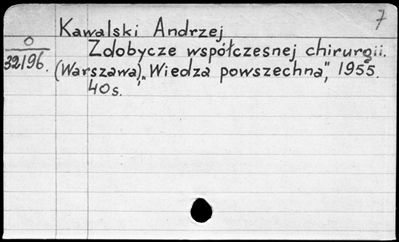 7
Kawalski Andrzej
0
32196.
Zdobycze współczesnej chirurgii.
(Warszawa), „Wiedza powszechna", 1955.
40 s.